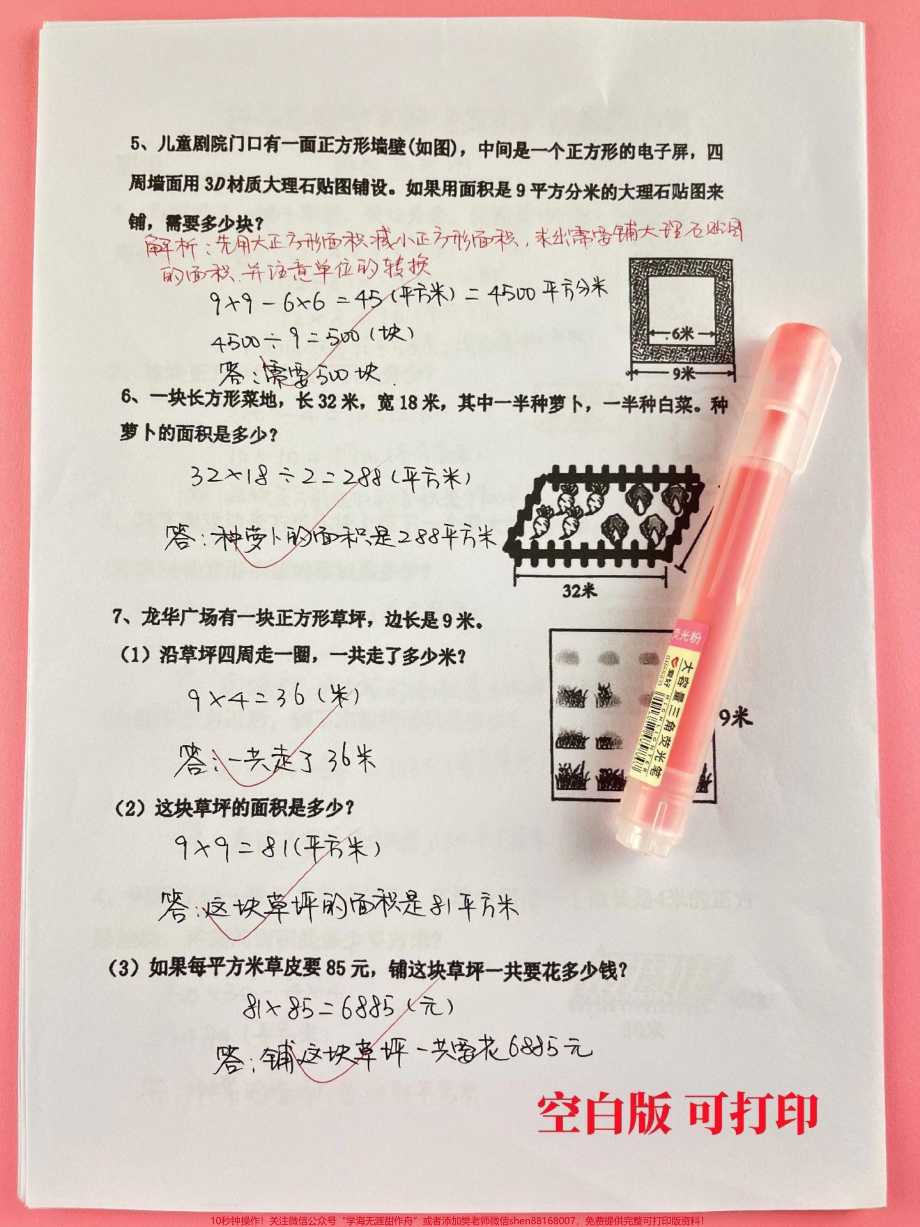 5、儿童剧院门口有一面正方形墙壁(如图)，中间是一个正方形的电子屏，四
周墙面用3D材质大理石贴图铺设。如果用面积是9平方分米的大理石贴图来
铺，需要多少块？
解析：先用大正方形面积减小正方形面积，求出需要铺大理石贴图
的面积，并注意单位的转换
9×9-6×6=45(平方米)=4500平方分米
4500÷9=500(块)
答：需要500块.
6米
9米
6、一块长方形菜地，长32米，宽18米，其中一半种萝卜，一半种白菜。种
萝卜的面积是多少？
32×18÷2=288(平方米)
答：种萝卜的面积是288平方米
32米
7、龙华广场有一块正方形草坪，边长是9米。
（1）沿草坪四周走一圈，一共走了多少米？
9×4=36(米)
答：一共走了36米
9米
（2）这块草坪的面积是多少？
9×9=81(平方米)
答：这块草坪的面积是81平方米
（3）如果每平方米草皮要85元，铺这块草坪一共要花多少钱？
81×85=6885(元)
答：铺这块草坪一共要花6885元
荧光粉
爱好
HIGHLIGHTER
大容量三角荧光笔
空白版 可打印
10秒钟操作！关注微信公众号“学海无涯甜作舟”或者添加樊老师微信shen88168007，免费提供完整可打印版资料！